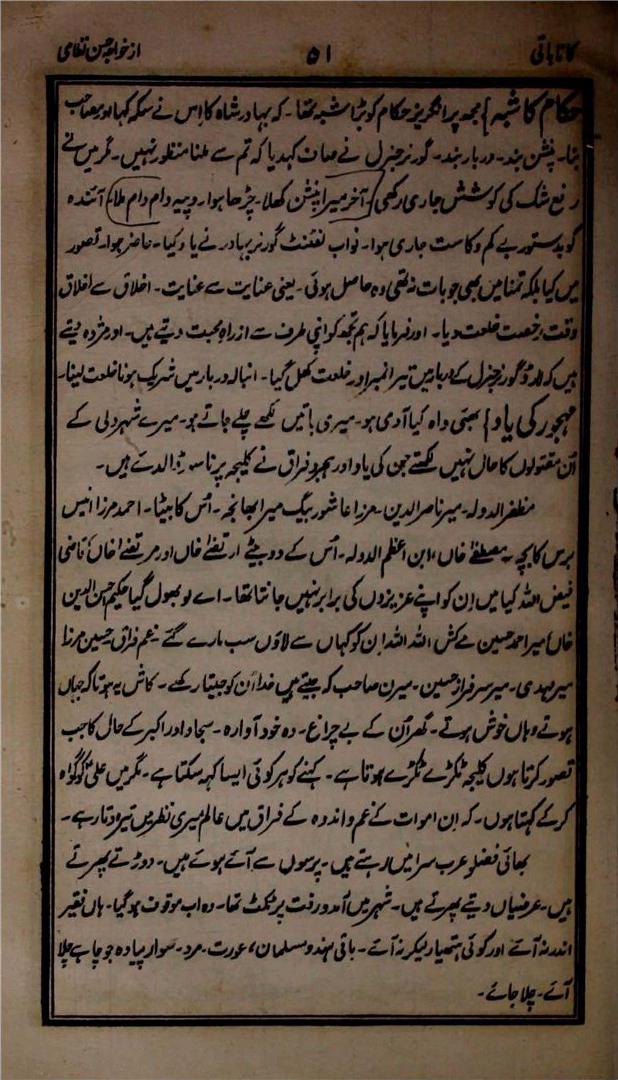 از خواجہ حسن نظامی ۵۱ کا ناباتی
حکام کا شبہ} مجھ پر انگریز حکام کو بڑا شبہ تھا۔ کہ بہادر شاہ کا اس نے سکہ کہا اور مصاحب
بنا۔ پنشن بند۔ دربار بند۔ گورنر جنرل نے صاف کہدیا کہ تم سے ملنا منظور نہیں۔ مگر میں نے
رفع شک کی کوشش جاری رکھی آخر میرا پنشن کھلا۔ چڑھا ہوا روپیہ دام دام ملا۔ آئندہ
کو بدستور بے کم و کاست جاری ہوا۔ نواب لفٹنٹ گورنر بہادر نے یاد کیا۔ حاضر ہوا۔ تصور
میں کیا بلکہ تمنا میں بھی جو بات نہ تھی وہ حاصل ہوئی۔ یعنی عنایت سے عنایت۔ اخلاق سے اخلاق
وقت رخصت خلعت دیا۔ اور فرمایا کہ ہم تجھ کو اپنی طرف سے از راہ محبت دیتے ہیں۔ اور مژدہ دیتے
ہیں کہ لارڈ گورنر جنرل کے دربار میں تیرا نمبر اور خلعت کھل گیا۔ انبالہ دربار میں شریک ہونا خلعت لینا۔
مہجور کی یاد} بھئی واہ کیا آدمی ہو۔ میری باتیں لکھے چلے جاتے ہو۔ میرے شہر دلی کے
اُن مقتولوں کا حال نہیں لکھتے جن کی یاد اور ہجر و فراق نے کلیجہ پر ناسور ڈالدئے ہیں۔
مظفر الدولہ۔ میر ناصر الدین۔ مرزا عاشور بیگ میرا بھانجہ۔ اُس کا بیٹا۔ احمد مرزا انیس
برس کا بچہ۔ مصطفےٰ خاں، ابن اعظم الدولہ۔ اُس کے دو بیٹے ارتضےٰ خاں اور مرتضےٰ خاں، قاضی
فیض اللہ کیا میں اِن کو اپنے عزیزوں کی برابر نہیں جانتا تھا۔ اے لو بھول گیا حکیم رضی الدین
خاں! میر احمد حسین مے کش اللہ اللہ اِن کو کہاں سے لاؤں سب مارے گئے۔ غم فراق حسین مرزا
میر مہدی۔ میر سرفراز حسین۔ میرن صاحب کہ جیتے ہیں خدا اُن کو جیتا رکھے۔ کاش یہ ہوتا کہ جہاں
ہوتے وہاں خوش ہوتے۔ گھر اُن کے بے چراغ۔ وہ خود آوارہ۔ سجاد اور اکبر کے حال کا جب
تصور کرتا ہوں کلیجہ ٹکڑے ٹکڑے ہوتا ہے۔ کہنے کو ہر کوئی ایسا کہہ سکتا ہے۔ مگر میں علیؑ کو گواہ
کرکے کہتا ہوں۔ کہ اِن اموات کے غم و اندوہ کے فراق میں عالم میری نظر میں تیرہ و تار ہے۔
بھائی فضلو عرب سرا میں رہتے ہیں۔ پرسوں سے آئے ہوئے ہیں۔ دوڑتے پھرتے
ہیں۔ عرضیاں دیتے پھرتے ہیں۔ شہر میں آمد و رفت پر ٹکٹ تھا۔ وہ اب موقوف ہو گیا۔ ہاں فقیر
اندر نہ آئے اور کوئی ہتھیار لیکر نہ آئے۔ باقی ہندو مسلمان، عورت۔ مرد۔ سوار پیادہ جو چاہے چلا
آئے۔ چلا جائے۔